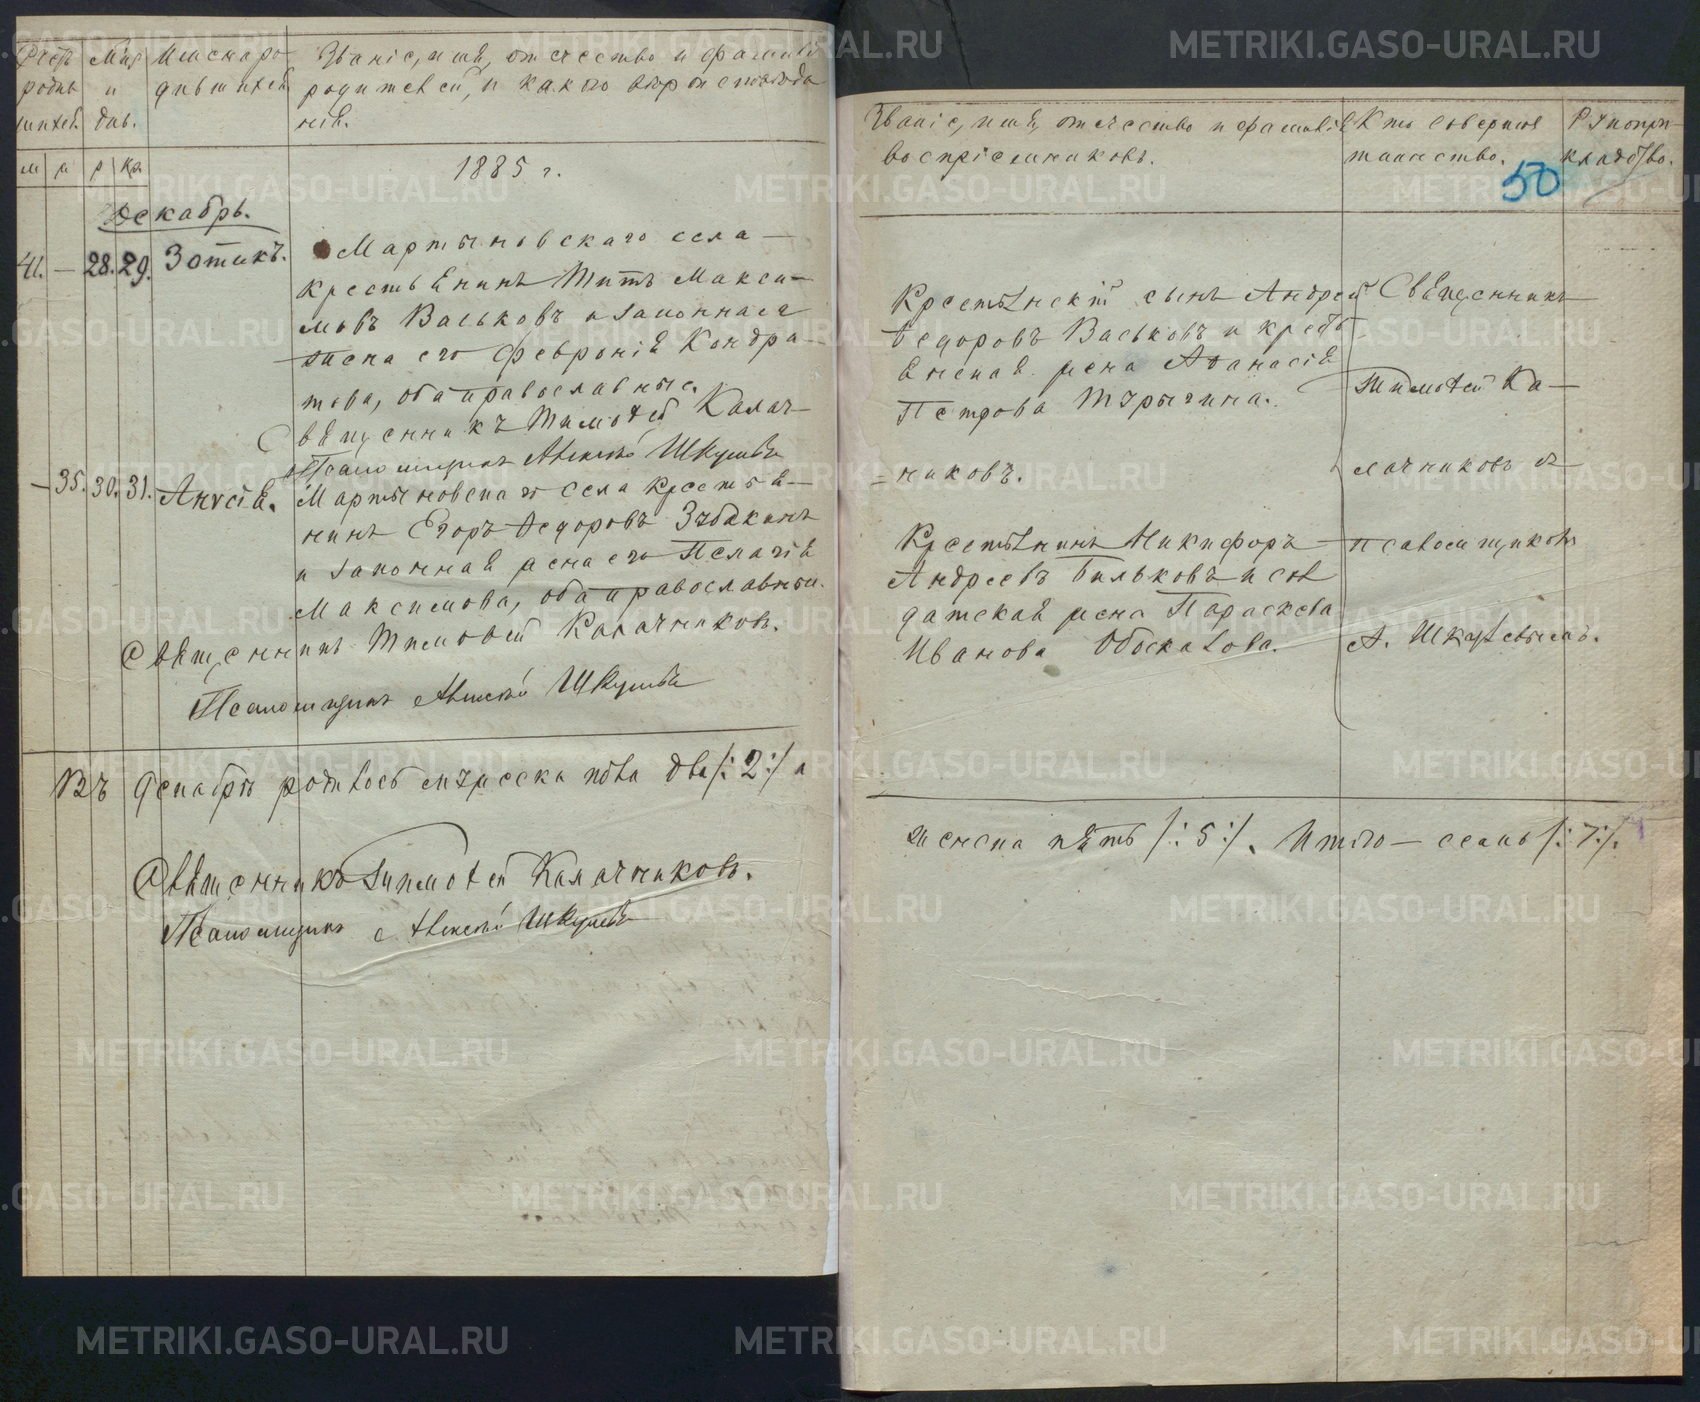 Счетъ
родив
шихся.
Мѣс.
и
дни.
Имена ро-
дившихся
Званіе, имя, отчество и фамилія
родителей, и какого вѣроисповѣда
нія.
м. ж. р. кр.
1885 г.
Декабрь.
41. — 28. 29. Зотикъ.
Мартыновскаго села —
крестьянинъ Титъ Макси-
мовъ Васьковъ и законная
жена его Февронія Кондра-
това, оба православные.
Священникъ Тимофей Калач-
Псаломщикъ Алексѣй Шкулевъ
— 35. 30. 31. Анисія.
Мартыновскаго села крестья-
нинъ Егоръ Ѳедоровъ
и законная жена его Пелагія
Максимова, оба православные.
Священникъ Тимоѳей Калачниковъ.
Псаломщикъ Алексѣй Шкулевъ
Въ Декабрѣ родилось мужеска пола два /: 2 :/ а
Священникъ Тимоѳей Калачниковъ.
Псаломщикъ Алексѣй Шкулевъ
Званіе, имя, отчество и фамилія
воспріемниковъ.
Кто совершал
таинство.
Рукопри-
кладство.
50
Крестьянскій сынъ Андрей
Ѳедоровъ Васьковъ и кресть
янская жена Аѳанасія
Петрова
никовъ.
Священникъ
Тимоѳей Ка —
лачниковъ съ
Крестьянинъ Никифоръ
Андреевъ и сол
датская жена Параскева
Иванова
псаломщикомъ
А. Шкулевымъ.
женска пять /: 5 :/. Итого — семь /: 7 :/.
METRIKI.GASO-URAL.RU